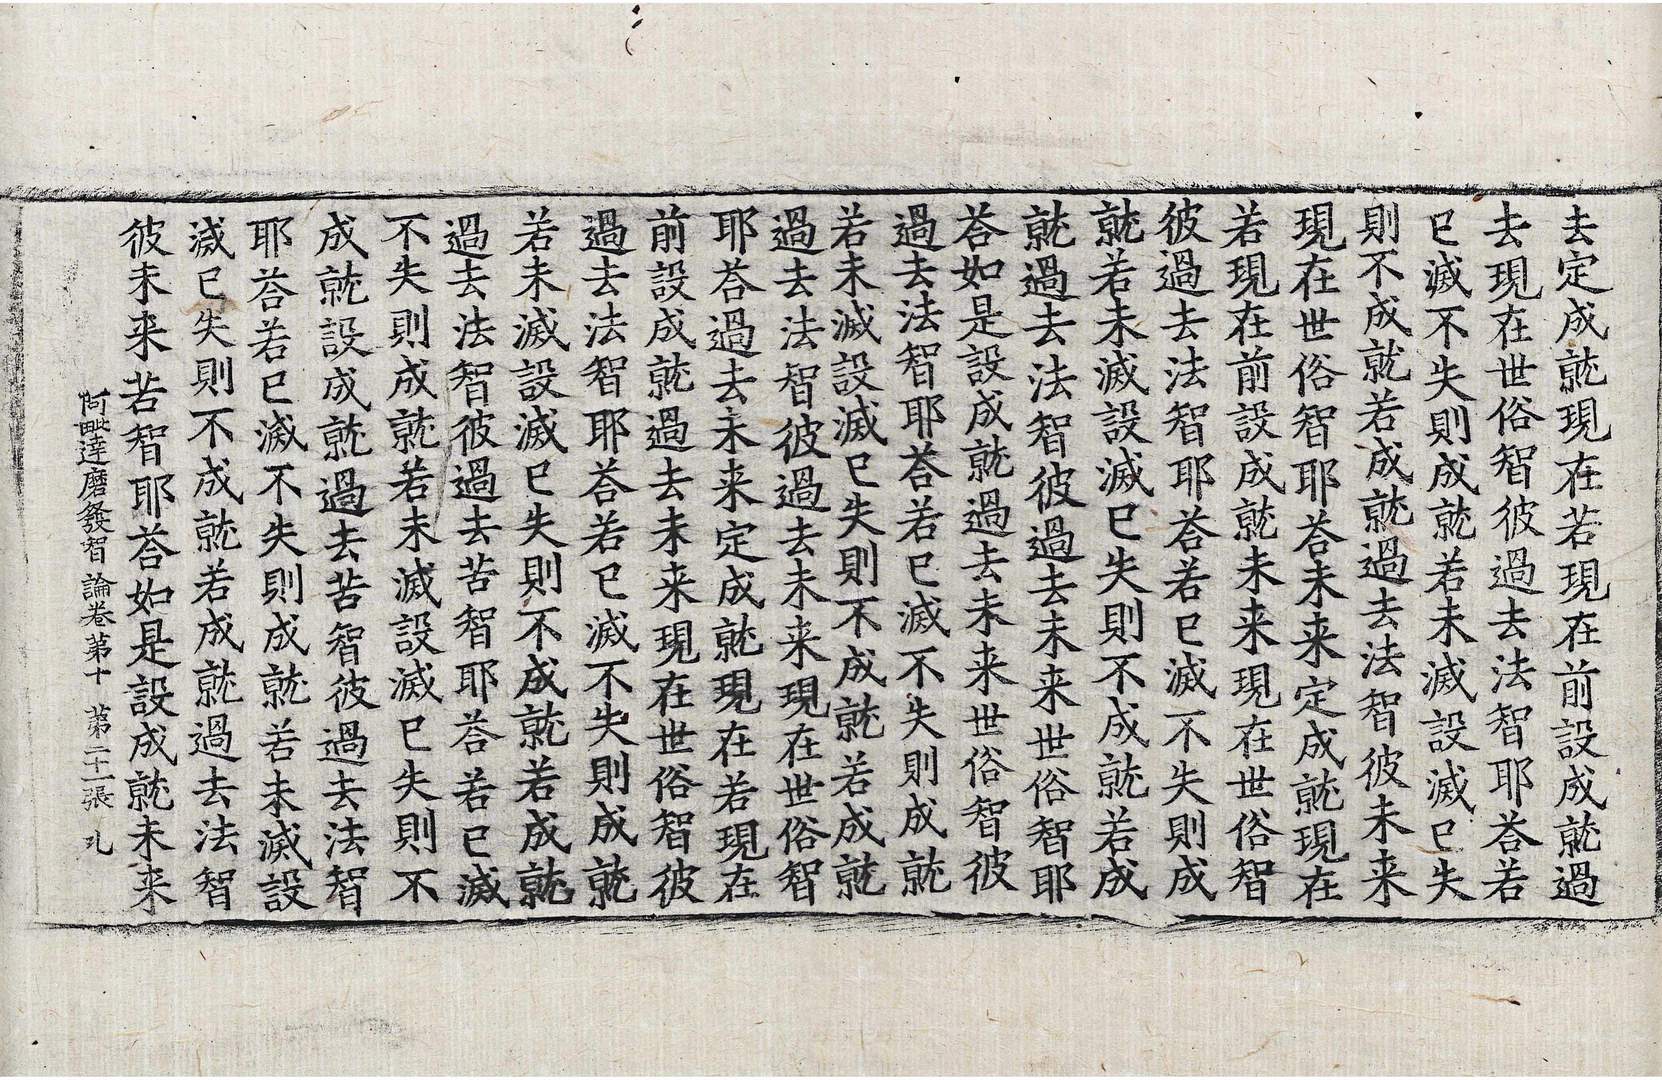 去定成就現在若現在前設成就過
去現在世俗智彼過去法智耶荅若
已滅不失則成就若未滅設滅已失
則不成就若成就過去法智彼未来
現在世俗智耶荅未来定成就現在
若現在前設成就未来現在世俗智
彼過去法智耶荅若已滅不失則成
就若未滅設滅已失則不成就若成
就過去法智彼過去未来世俗智耶
荅如是設成就過去未来世俗智彼
過去法智耶荅若已滅不失則成就
若未滅設滅已失則不成就若成就
過去法智彼過去未来現在世俗智
耶荅過去未来定成就現在若現在
前設成就過去未来現在世俗智彼
過去法智耶荅若已滅不失則成就
若未滅設滅已失則不成就若成就
過去法智彼過去苦智耶荅若已滅
不失則成就若未滅設滅已失則不
成就設成就過去苦智彼過去法智
耶荅若已滅不失則成就若未滅設
滅已失則不成就若成就過去法智
彼未来苦智耶荅如是設成就未来
阿毗達磨發智論卷第十 第二十一張 孔